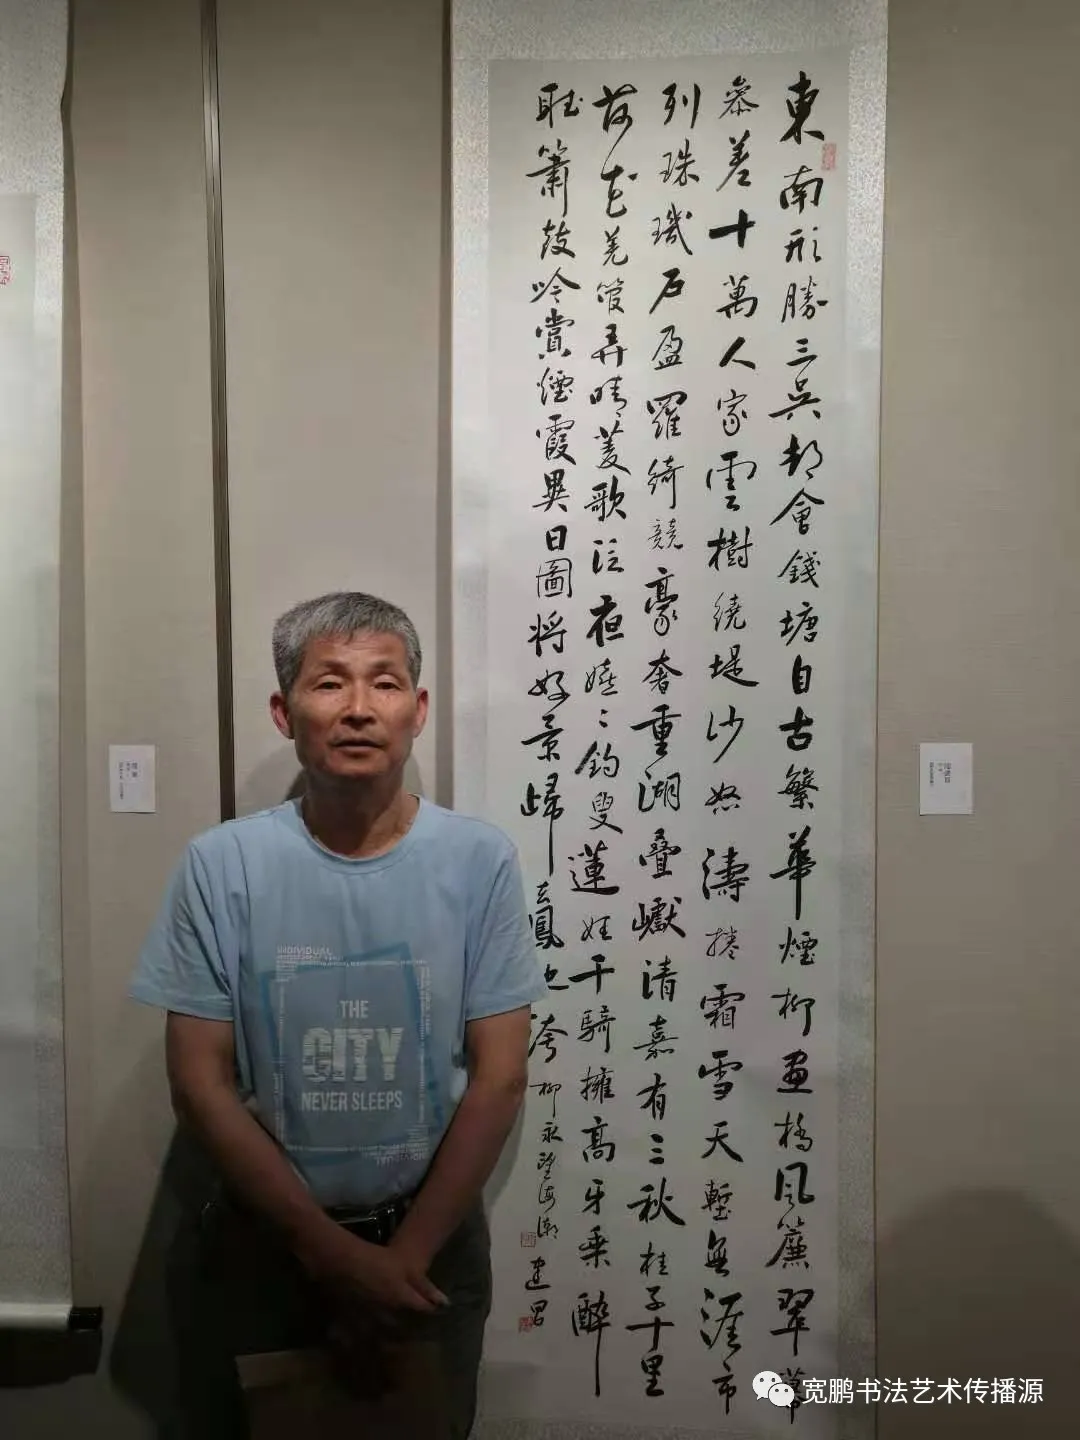 東南形勝三吴都會錢塘自古繁華煙柳畫橋風簾翠幕
參差十萬人家雲樹繞堤沙怒濤捲霜雪天塹無涯市
列珠璣戶盈羅綺競豪奢重湖疊巘清嘉有三秋桂子十里
荷花羌管弄晴菱歌泛夜嬉〻釣叟蓮娃千騎擁高牙乘醉
聽簫鼓吟賞煙霞異日圖將好景歸去鳳池誇
柳永望海潮
建昌
INDIVIDUAL
THE
CITY
NEVER SLEEPS
宽鹏书法艺术传播源